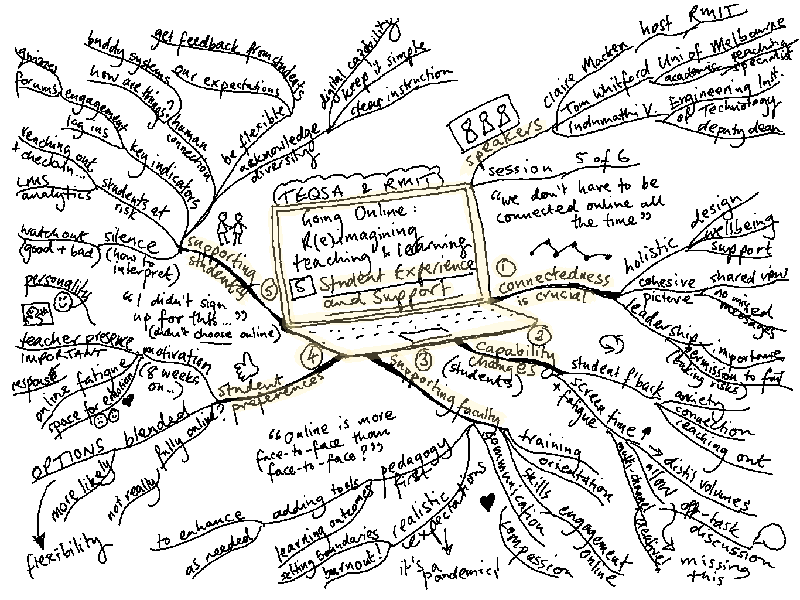 TEQSA & RMIT
Going Online:
R(e)imagining
teaching & learning
5 Student Experience
and Support
speakers
Claire Macken
host RMIT
Tom Whitford Uni of Melbourne
academic teaching
specialist
Indumathi V.
Engineering Inst.
of Technology
deputy dean
session 5 of 6
"we don't have to be
connected online all
the time"
1
connectedness
is crucial
holistic
design
wellbeing
support
cohesive
picture
shared view
no mixed
messages
leadership
importance
permission to fail
(taking risks)
2
capability
changes
(students)
student f'back
anxiety
connection
reaching out
screen time
+ fatigue
distil volumes
allow off-task
discussion
missing
this
3
supporting faculty
training
orientation
skills
engagement
online
communication
compassion
realistic
expectations
it's a pandemic!
setting boundaries
burnout!
pedagogy
first
adding tools
to enhance
as needed
learning outcomes
"Online is more
face-to-face than
face-to-face?"
4
student
preferences
motivation
(8 weeks
on...)
teacher presence
IMPORTANT
personality
response
online fatigue
space for emotion
blended
OPTIONS
flexibility
more likely
fully online?
not really
5
supporting
students
"I didn't sign
up for this..."
(didn't choose online)
silence
(how to
interpret)
watch out
(good + bad)
students at
risk
LMS
analytics
reaching out
+ check in...
key indicators
log ins
engagement
forums
quizzes
human
connection
how are things?
buddy systems
be flexible
our expectations
get feedback from students
acknowledge
diversity
digital capability
keep it simple
clear instruction